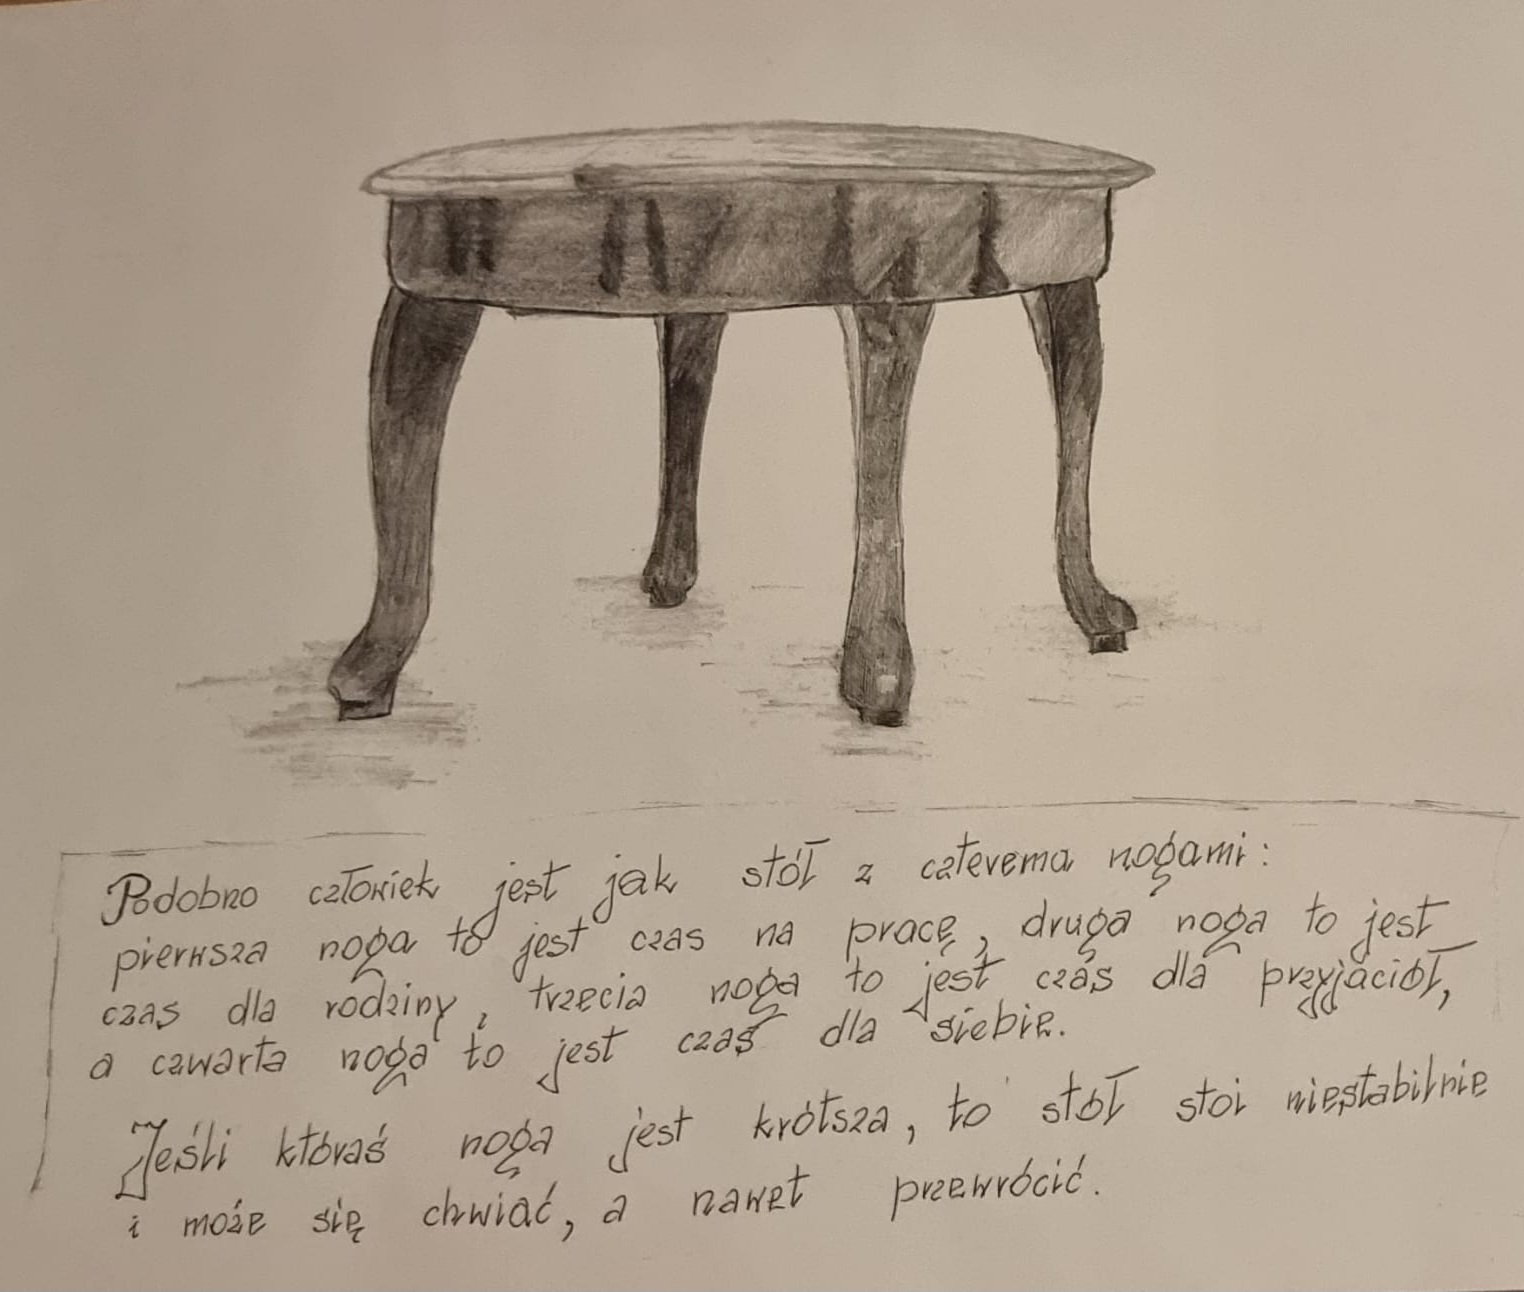 Podobno człowiek jest jak stół z czterema nogami:
pierwsza noga to jest czas na pracę, druga noga to jest
czas dla rodziny, trzecia noga to jest czas dla przyjaciół,
a czwarta noga to jest czas dla siebie.
Jeśli któraś noga jest krótsza, to stół stoi niestabilnie
i może się chwiać, a nawet przewrócić.